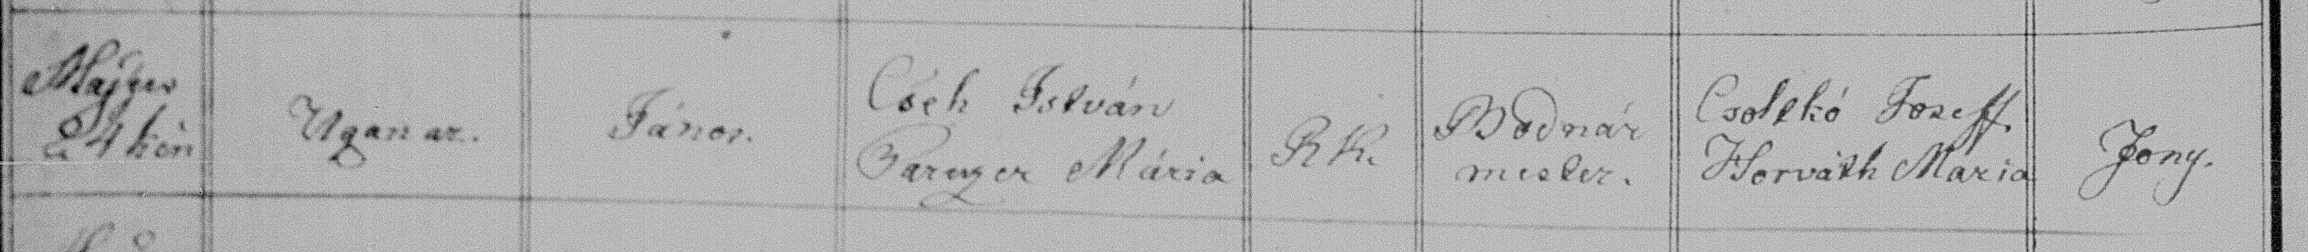 Majus
24kén
Ugan az.
János.
Cseh István
Paruzer Mária
RK.
Bodnár
mester.
Csolekó Joseff.
Horváth Maria
Jony.